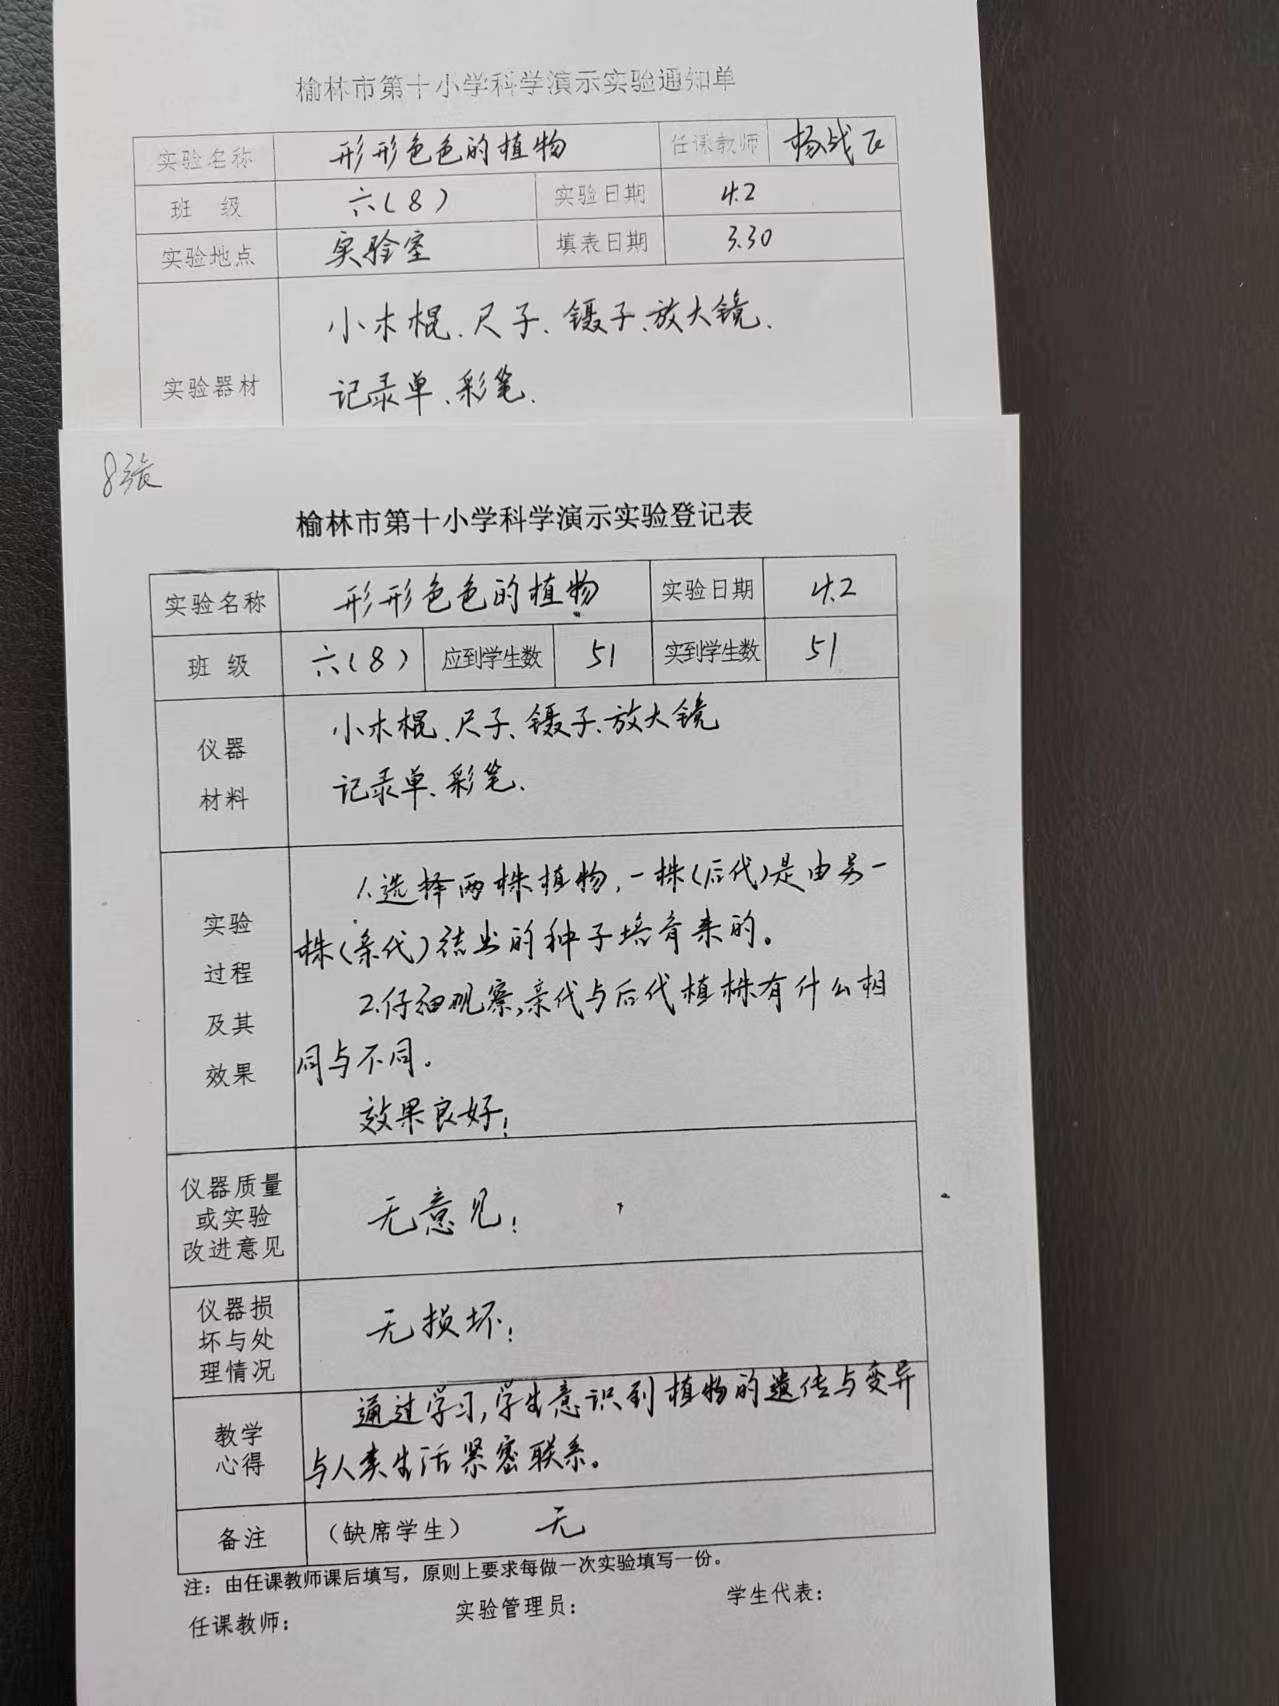 榆林市第十小学科学演示实验通知单
实验名称 形形色色的植物 任课教师 杨战飞
班 级 六(8) 实验日期 4.2
实验地点 实验室 填表日期 3.30
实验器材
小木棍、尺子、镊子、放大镜、
记录单、彩笔.
8张
榆林市第十小学科学演示实验登记表
实验名称 形形色色的植物 实验日期 4.2
班 级 六(8) 应到学生数 51 实到学生数 51
仪器
材料
小木棍、尺子、镊子、放大镜
记录单、彩笔.
实验
过程
及其
效果
1.选择两株植物,一株(后代)是由另一
株(亲代)结出的种子培育来的。
2.仔细观察,亲代与后代植株有什么相
同与不同。
效果良好!
仪器质量
或实验
改进意见
无意见!
仪器损
坏与处
理情况
无损坏!
教学
心得
通过学习,学生意识到植物的遗传与变异
与人类生活紧密联系。
备注 (缺席学生) 无
注：由任课教师课后填写，原则上要求每做一次实验填写一份。
任课教师： 实验管理员： 学生代表：